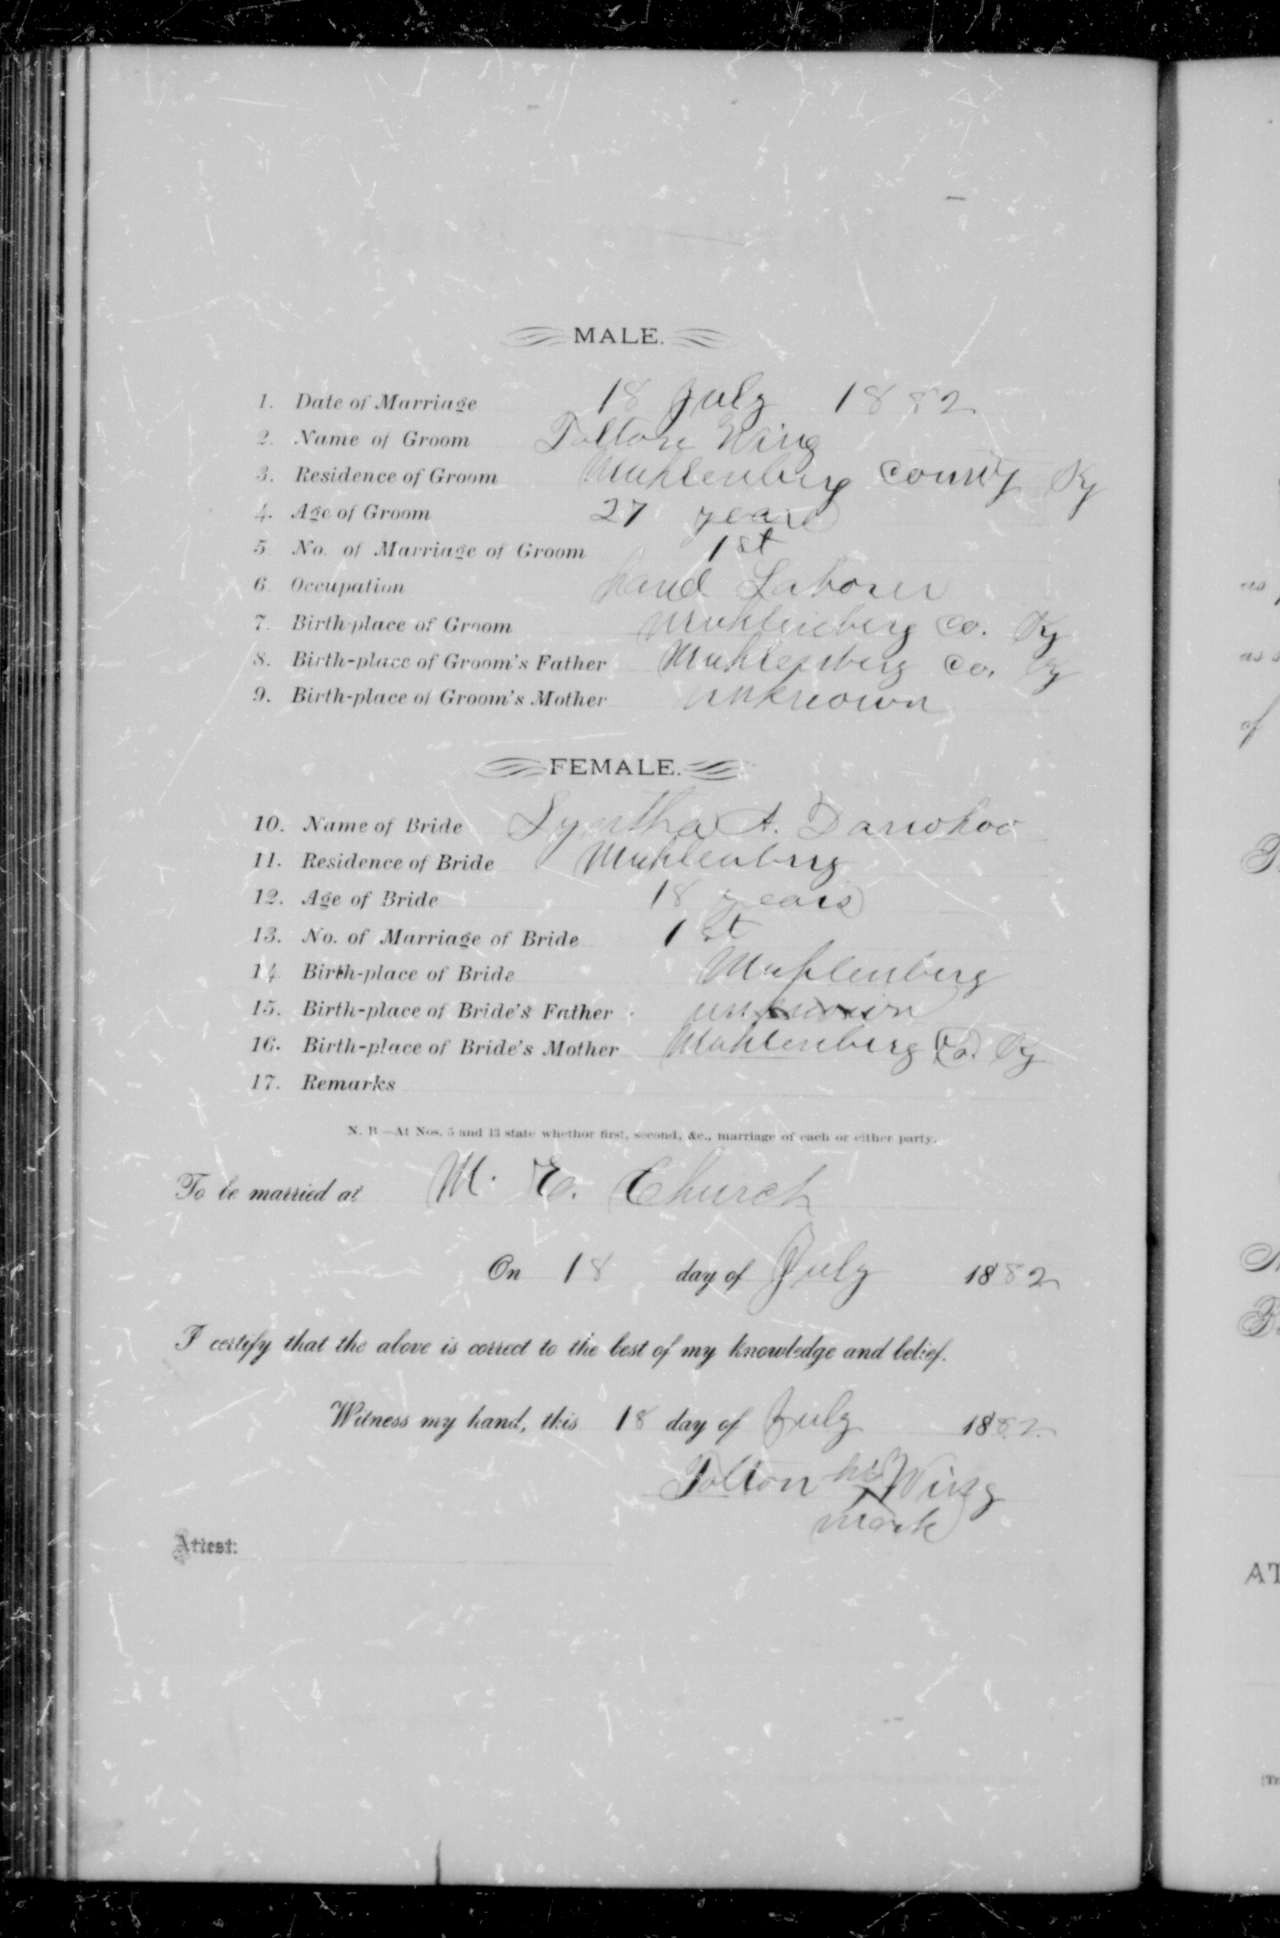 MALE.
1. Date of Marriage 18 July 1882
2. Name of Groom Tolton Wing
3. Residence of Groom Muhlenberg County Ky
4. Age of Groom 27 years
5. No. of Marriage of Groom 1st
6. Occupation hand Laborer
7. Birth-place of Groom Muhlenberg Co. Ky
8. Birth-place of Groom's Father Muhlenberg Co. Ky
9. Birth-place of Groom's Mother unknown
FEMALE.
10. Name of Bride Syntha A. Danohoo
11. Residence of Bride Muhlenberg
12. Age of Bride 18 years
13. No. of Marriage of Bride 1st
14. Birth-place of Bride Muhlenberg
15. Birth-place of Bride's Father unknown
16. Birth-place of Bride's Mother Muhlenberg Co. Ky
17. Remarks
N. B—At Nos. 5 and 13 state whethor first, second, &c., marriage of each or either party.
To be married at M. E. Church
On 18 day of July 1882
I certify that the above is correct to the best of my knowledge and belief.
Witness my hand, this 18 day of July 1882
Tolton his X Wing
mark
Attest: